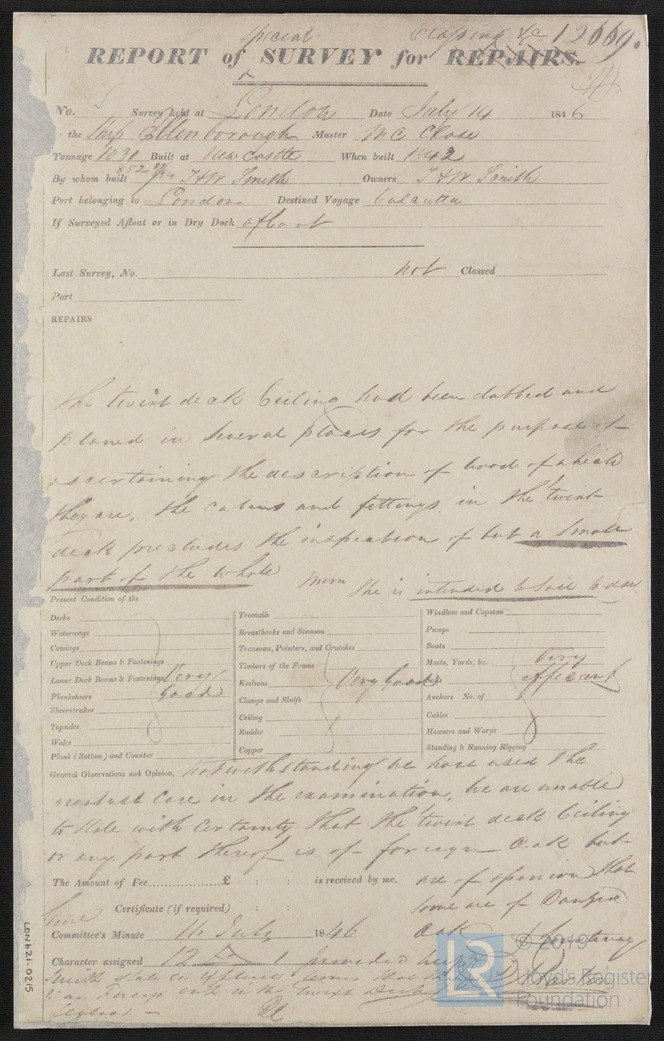 special Classing &c 12669.
REPORT of SURVEY for REPAIRS.
No. Survey held at London Date July 14 1846
the Ship Ellenborough Master W C Close
Tonnage 1031 Built at New Castle When built 1842
By whom built T & W Smith Owners T & W Smith
Port belonging to London Destined Voyage Calcutta
If Surveyed Afloat or in Dry Dock afloat
Last Survey, No. not Classed
Port
REPAIRS
The twixt deck Ceiling had been dubbed and
planed in several places for the purpose of
ascertaining the description of wood of which
they are. The cabins and fittings in the twixt
deck precludes the inspection of but a small
part of the whole Mem She is intended to sail to day
Present Condition of the
Decks
Waterways
Comings
Upper Deck Beams & Fastenings
Lower Deck Beams & Fastenings Very
Planksheers good
Sheerstrakes
Topsides
Wales
Plank (Bottom) and Counter
Treenails
Breasthooks and Stemson
Transoms, Pointers, and Crutches
Timbers of the Frame
Keelsons Very Good
Clamps and Shelfs
Ceiling
Rudder
Copper
Windlass and Capstan
Pumps
Boats
Masts, Yards, &c. Very
efficient
Anchors No. of
Cables
Hawsers and Warps
Standing & Running Rigging
General Observations and Opinion, Notwithstanding we have used the
greatest care in the examination, we are unable
to state with certainty that the twixt deck Ceiling
or any part thereof is of foreign Oak but
The Amount of Fee............£ : : is received by me. are of opinion that
Certificate (if required) : : some are of Dantzic
Committee's Minute 16 July 1846 Oak
Character assigned 12 A 1 provided
Smith state in
in the twixt Decks
LDN621-0215
© 2019
LR
Lloyd's Register
Foundation